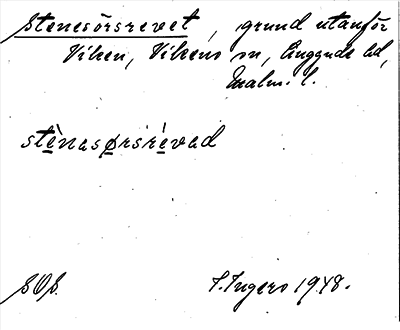 Stenesörsrevet, grund utanför
Viken, Vikens sn, Luggude hd,
Malm. l.
stènasørsrèvad
SOS.
S. Ingers 1948.